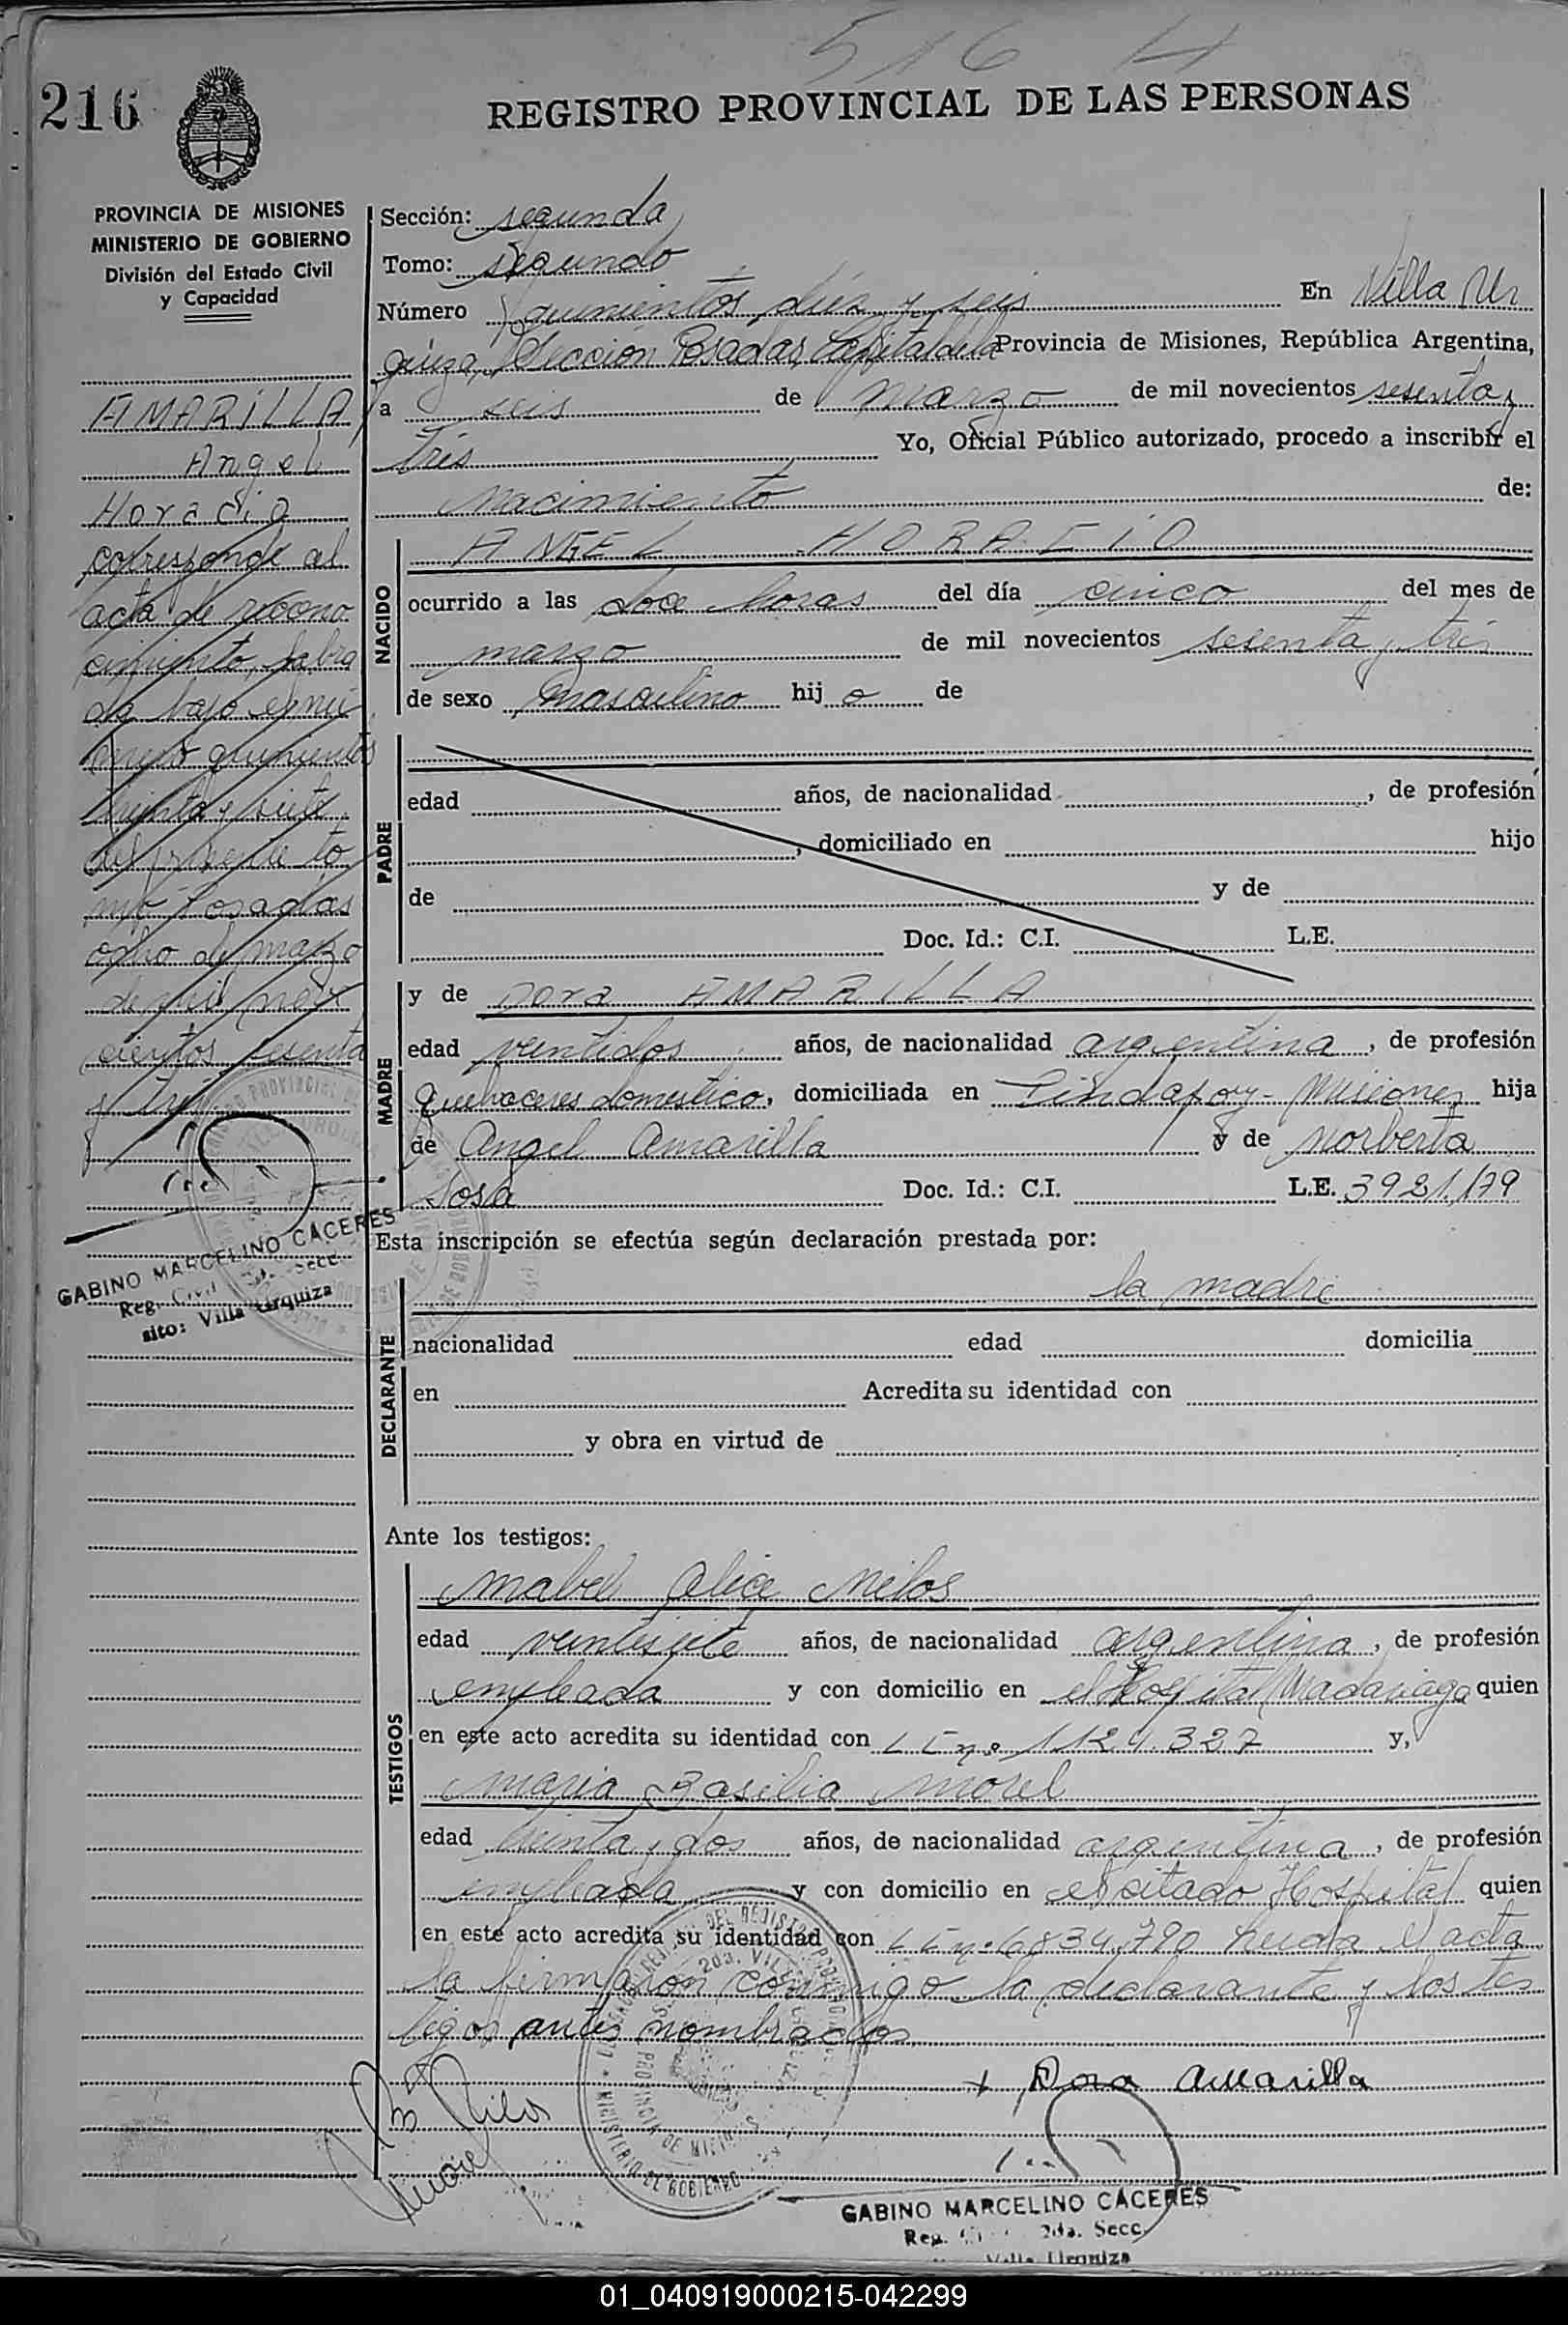 516 H
216
REGISTRO PROVINCIAL DE LAS PERSONAS
PROVINCIA DE MISIONES
MINISTERIO DE GOBIERNO
División del Estado Civil
y Capacidad
AMARILLA
Angel
Horacio
corresponde al
acta de recono
cimiento, labra
da bajo el nú
mero quinientos
treinta y siete
del presente to
mo Posadas
ocho de marzo
de mil nove
cientos sesenta
y tres.
GABINO MARCELINO CACERES
Reg. Civil 2da. Secc.
sito: Villa Urquiza
Sección: segunda
Tomo: segundo
Número quinientos diez y seis En Villa Ur
quiza, Sección Posadas, Capital de la Provincia de Misiones, República Argentina,
a seis de marzo de mil novecientos sesenta y
tres Yo, Oficial Público autorizado, procedo a inscribir el
nacimiento de:
NACIDO
ANGEL HORACIO
ocurrido a las doce horas del día cinco del mes de
marzo de mil novecientos sesenta y tres
de sexo masculino hijo de
PADRE
edad años, de nacionalidad , de profesión
, domiciliado en hijo
de y de
Doc. Id.: C.I. L.E.
MADRE
y de Dora AMARILLA
edad veintidos años, de nacionalidad argentina, de profesión
Quehaceres domestico, domiciliada en Pindapoy - Misiones hija
de Angel Amarilla y de Norberta
Sosa Doc. Id.: C.I. L.E. 3921.179
Esta inscripción se efectúa según declaración prestada por:
DECLARANTE
la madre
nacionalidad edad domicilia
en Acredita su identidad con
y obra en virtud de
Ante los testigos:
TESTIGOS
Mabel Alice Milos
edad veintisiete años, de nacionalidad argentina, de profesión
empleada y con domicilio en el Hospital Madariaga quien
en este acto acredita su identidad con L E nº 1124.327 y,
Maria Basilia Morel
edad treinta y dos años, de nacionalidad argentina, de profesión
empleada y con domicilio en el citado Hospital quien
en este acto acredita su identidad con L E nº 6834.790 Leida el acta
la firmaron conmigo la declarante y los tes
tigos antes nombrados
+ Dora Amarilla
M Milos
Morel
GABINO MARCELINO CACERES
Reg. 2da. Secc.
Villa Urquiza
01_040919000215-042299